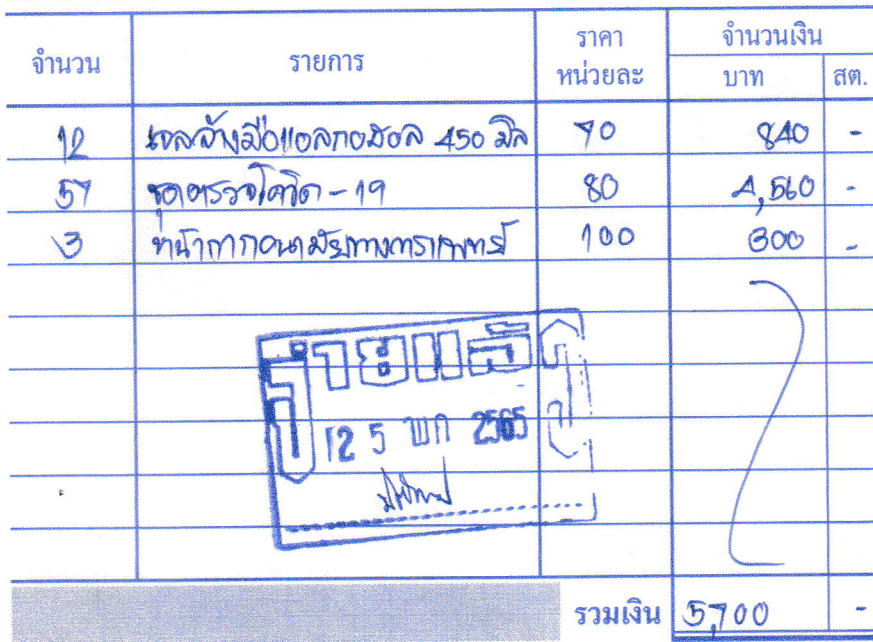 จำนวน รายการ ราคา หน่วยละ จำนวนเงิน บาท สต.
12 เจลล้างมือแอลกอฮอล 450 มิล 70 840 -
57 ชุดตรวจโควิด-19 80 4,560 -
3 หน้ากากอนามัยทางการแพทย์ 100 300 -
จ่ายแล้ว
25 พค 2565
รวมเงิน 5,700 -